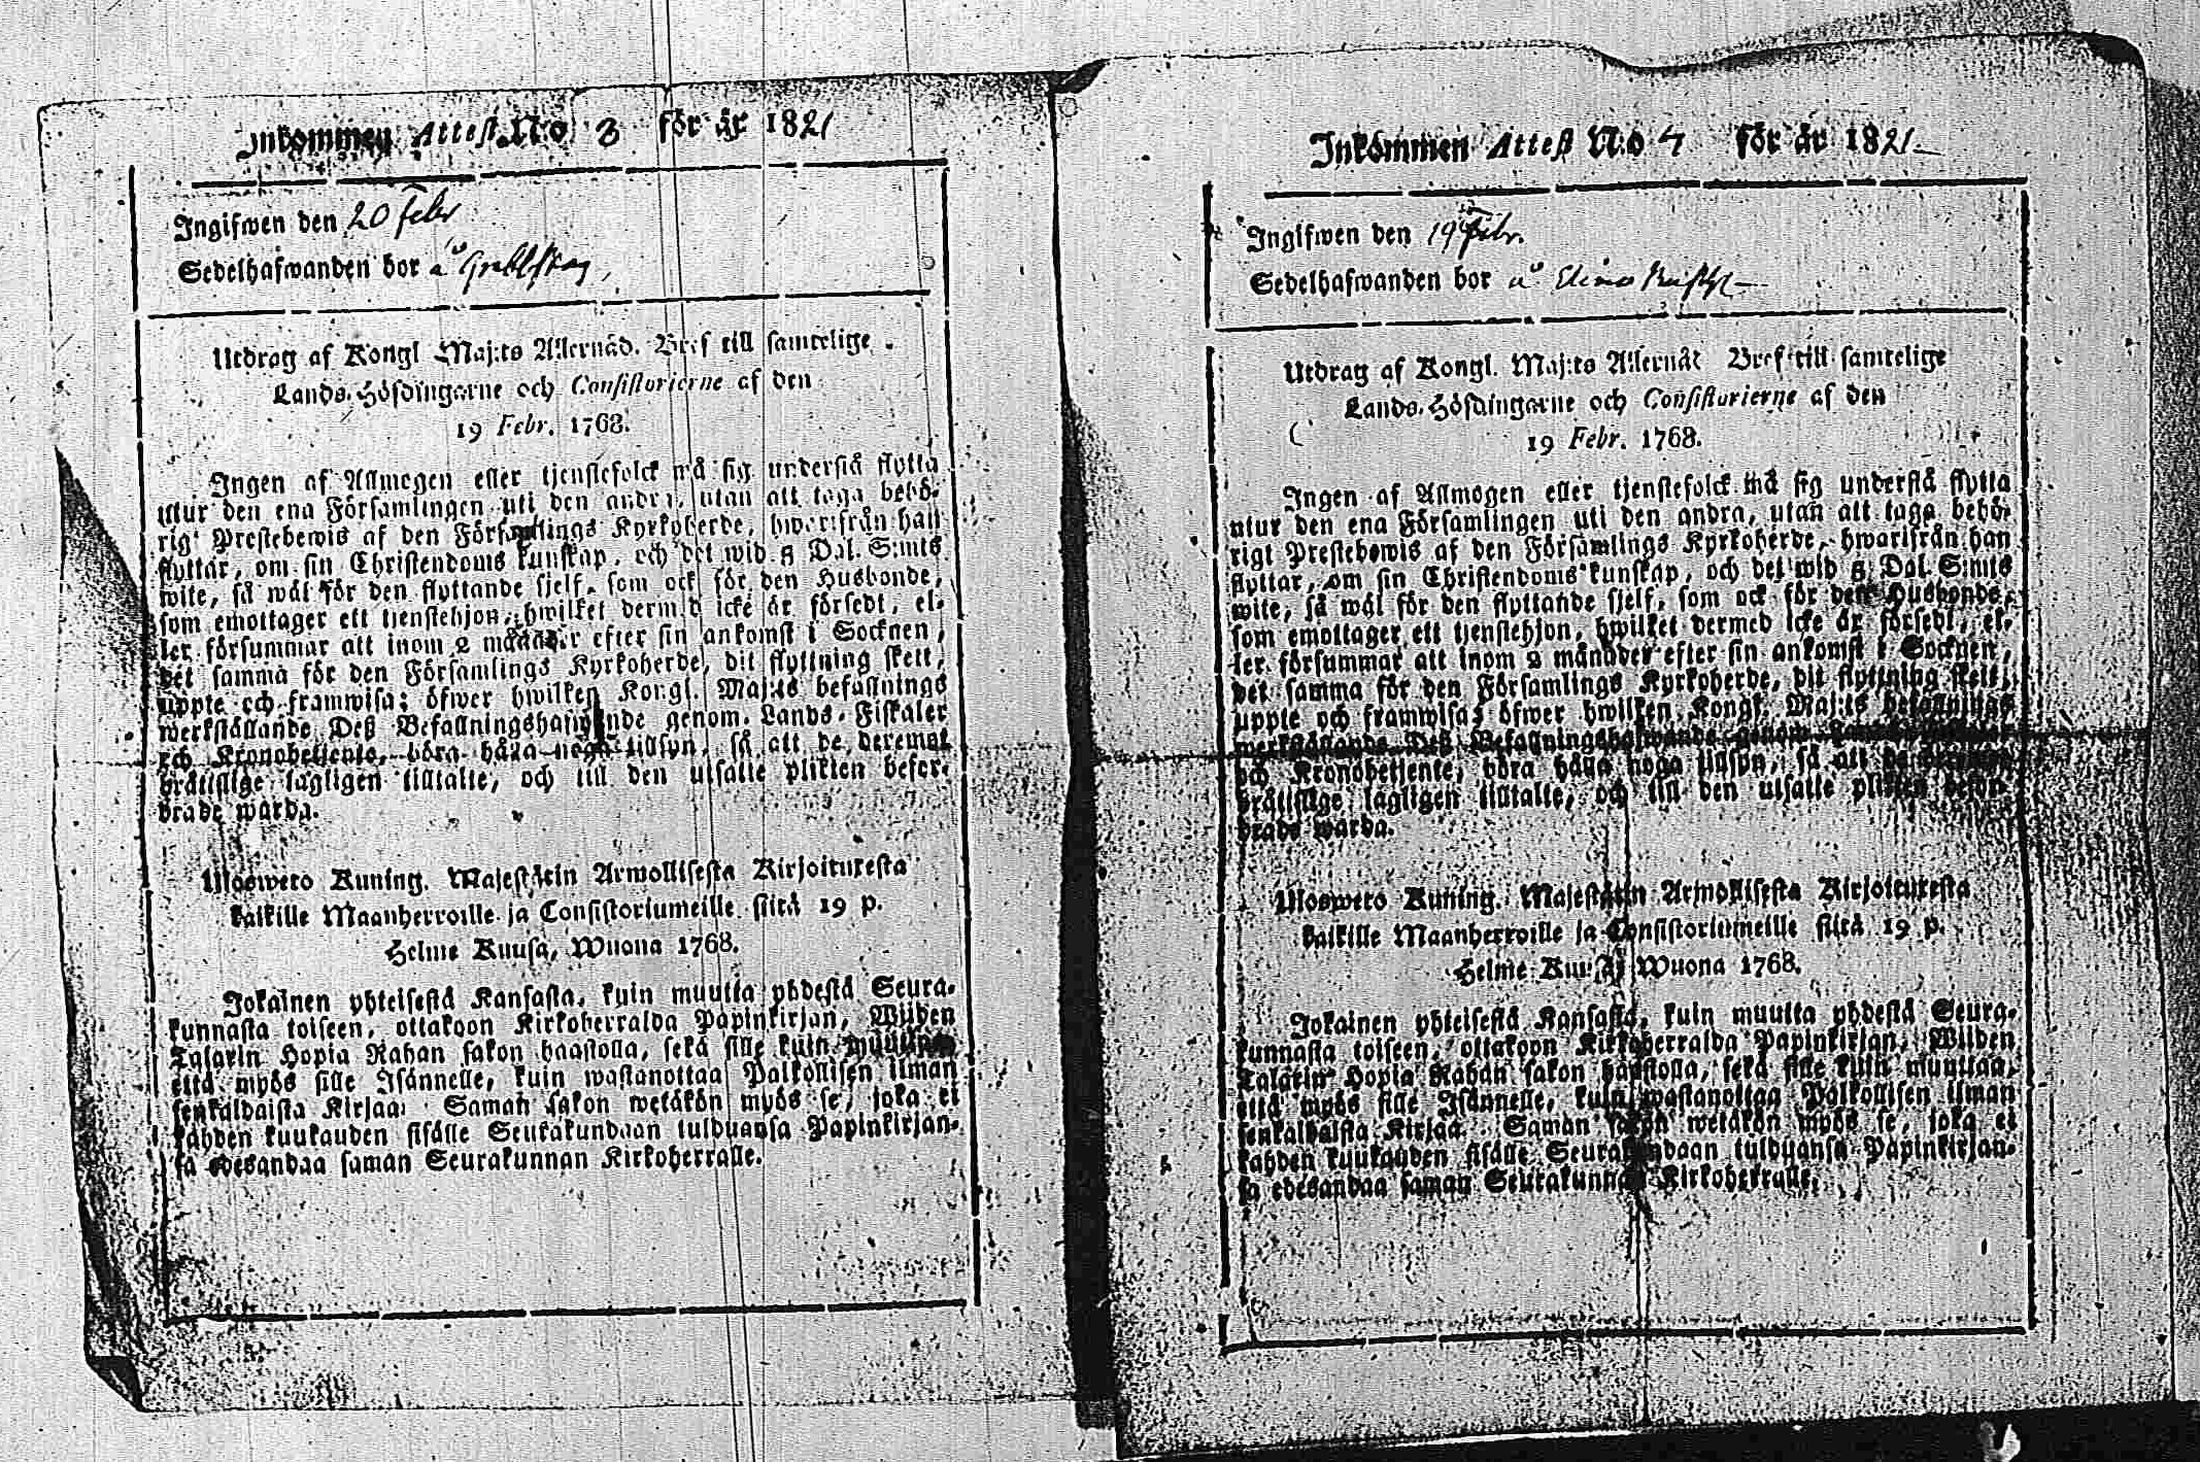 Inkommen Attest N:o 3 för år 1821
Ingifwen den 20 Febr
Sedelhafwanden bor å
Utdrag af Kongl Maj:ts Allernåd. Bref till samtelige
Lands-Höfdingarne och Consistorierne af den
19 Febr. 1768.
Ingen af Allmogen eller tjenstefolck må sig understå flytta
utur den ena Församlingen uti den andra, utan att taga behö-
rigt Prestebewis af den Församlings Kyrkoherde, hwarifrån han
flyttar, om sin Christendoms kunskap, och det wid 8 Dal. S:mts
wite, så wäl för den flyttande sjelf, som ock för den Husbonde,
som emottager ett tjenstehjon, hwilket dermed icke är försedt, el-
ler försummar att inom 2 månader efter sin ankomst i Socknen,
det samma för den Församlings Kyrkoherde, dit flyttning skett,
uppte och framwisa; öfwer hwilken Kongl. Maj:ts befallnings
werkställande Deß Befallningshafwande genom Lands-Fiskaler
och Kronobetjente, böra hålla noga tillsyn, så att de deremot
bråttslige lagligen tilltalte, och till den utsatte plikten befor-
drade warda.
Ulosweto Kuning. Majestätin Armollisesta Kirjoituxesta
kaikille Maanherroille ja Consistoriumeille siitä 19 p.
Helme Kuusa, Wuona 1768.
Jokainen yhteisestä Kansasta, kuin muutta yhdestä Seura-
kunnasta toiseen, ottakoon Kirkoherralda Papinkirjan, Wiiden
Talarin Hopia Rahan sakon haastolla, sekä sille kuin muuttaa,
että myös sille Isännelle, kuin wastanottaa Palkollisen ilman
senkaldaista Kirjaa. Saman sakon wetäkön myös se, joka ei
kahden kuukauden sisälle Seurakundaan tulduansa Papinkirjan-
sa edesandaa saman Seurakunnan Kirkoherralle.
Inkommen Attest N:o 4 för år 1821
Ingifwen den 19 Febr.
Sedelhafwanden bor å
Utdrag af Kongl. Maj:ts Allernåt Bref till samtelige
Lands-Höfdingarne och Consistorierne af den
19 Febr. 1768.
Ingen af Allmogen eller tjenstefolck må sig understå flytta
utur den ena Församlingen uti den andra, utan att taga behö-
rigt Prestebewis af den Församlings Kyrkoherde, hwarifrån han
flyttar, om sin Christendoms kunskap, och det wid 8 Dal. S:mts
wite, så wäl för den flyttande sjelf, som ock för den Husbonde,
som emottager ett tjenstehjon, hwilket dermed icke är försedt, el-
ler försummar att inom 2 månader efter sin ankomst i Socknen,
det samma för den Församlings Kyrkoherde, dit flyttning skett,
uppte och framwisa; öfwer hwilken Kongl. Maj:ts befallnings
werkställande Deß Befallningshafwande genom
och Kronobetjente, böra hålla noga tillsyn, så att de deremot
bråttslige lagligen tilltalte, och till den utsatte plikten befor-
drade warda.
Ulosweto Kuning. Majestätin Armollisesta Kirjoituxesta
kaikille Maanherroille ja Consistoriumeille siitä 19 p.
Helme Kuusa, Wuona 1768.
Jokainen yhteisestä Kansasta, kuin muutta yhdestä Seura-
kunnasta toiseen, ottakoon Kirkoherralda Papinkirjan, Wiiden
Talarin Hopia Rahan sakon haastolla, sekä sille kuin muuttaa,
että myös sille Isännelle, kuin wastanottaa Palkollisen ilman
senkaldaista Kirjaa. Saman sakon wetäkön myös se, joka ei
kahden kuukauden sisälle Seurakundaan tulduansa Papinkirjan-
sa edesandaa saman Seurakunnan Kirkoherralle.